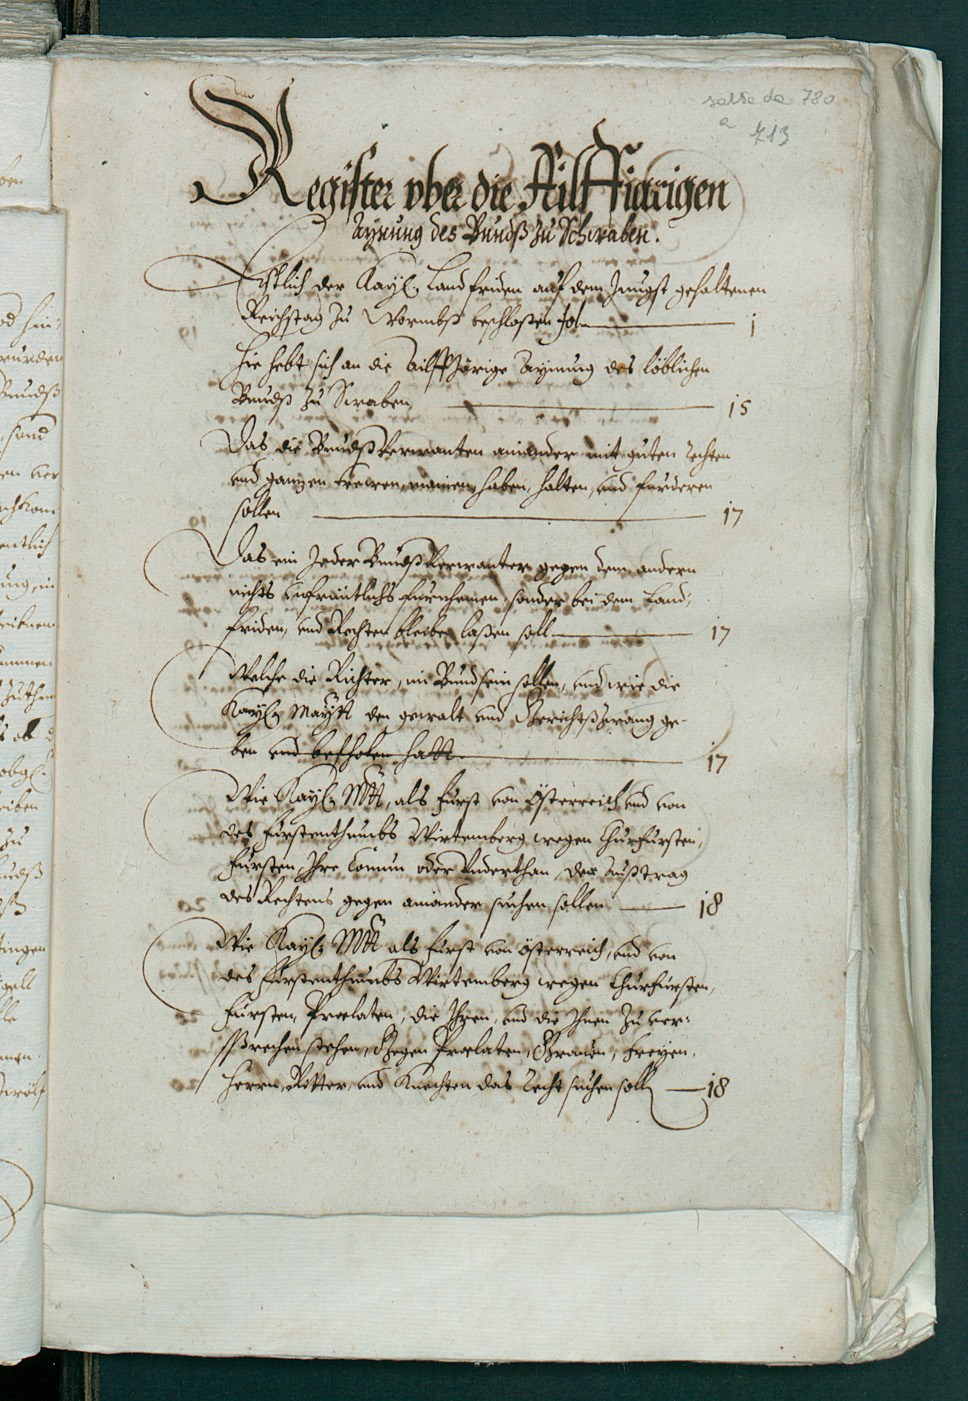 salta da 780
a 713
Register vber die Ailff Jarigen
Aÿnung des Bundß zu Schwaben.
Erstlich der Kayß. Landfriden auf dem Jungst gehaltenen
Reichstag zu Wormbß beschloßen fol. 1
Hie hebt sich an die Ailff Järige Aynung des löblichen
Bundß zu Swaben 15
Das die Bundßverwanten ainander mit guten rechten
vnd ganzen trewen mainen, haben, halten, vnd furderen
sollen 17
Das ein Jeder Bundßverwanter gegen dem andern
nichts vnfruntlichs furnehmen, sonder bei dem Land,
friden, vnd Rechten bleiben laßen soll 17
Welche die Richter, im Bund sein sollen, vnd wie die
Kayß. Mayt. den gewalt vnd Gerichtßzwang ge-
ben vnd befholen hatt 17
Wie Kayß. Mtt, als furst von Österreich vnd von
des furstenthumbs Wirtemberg wegen Churfursten,
fursten Ihre Comun oder Vnderthan, der Außtrag
des Rechtens gegen ainander suchen sollen 18
Wie Kayß. Mtt als furst von Österreich, vnd von
des furstenthumbs Wirtemberg wegen Churfursten,
fursten, Prelaten, die Ihren, vnd die Ihnen zu ver-
sprechen stehen, Gegen Prelaten, Grauen, freyen,
Herrn, Ritter, vnd Knechten das recht suchen soll 18